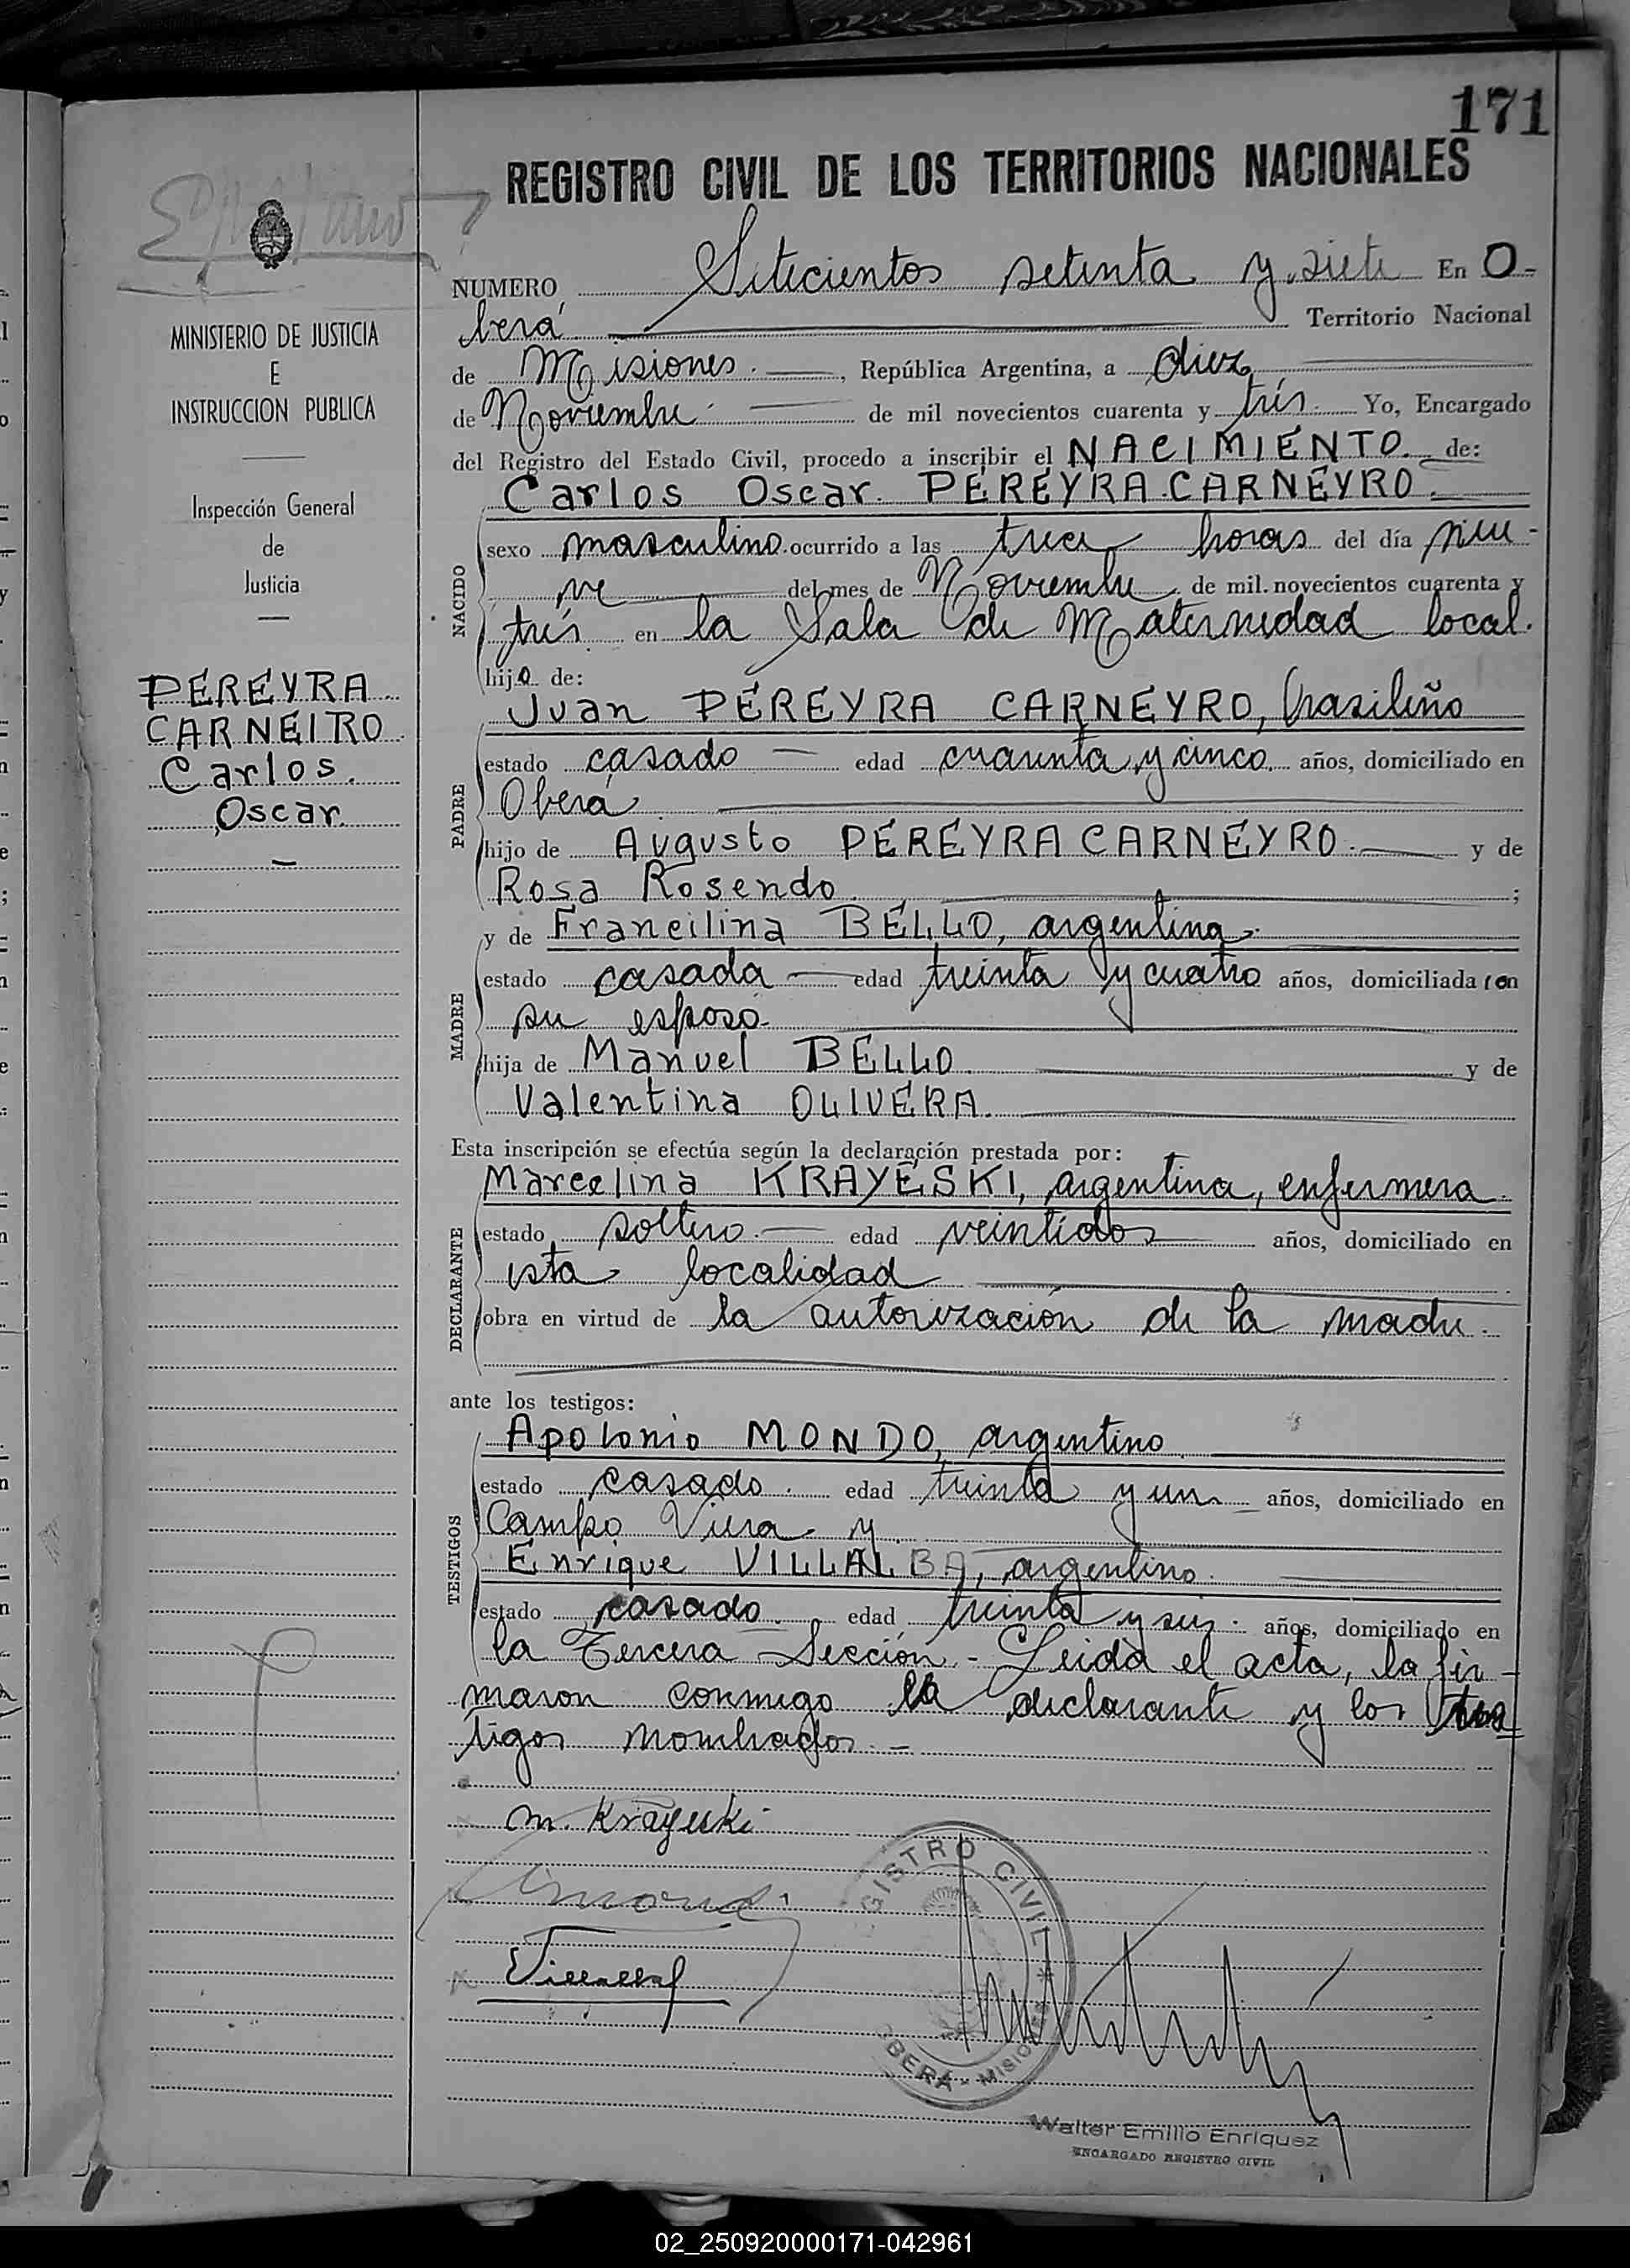 171
REGISTRO CIVIL DE LOS TERRITORIOS NACIONALES
MINISTERIO DE JUSTICIA
E
INSTRUCCION PUBLICA
Inspección General
de
Justicia
PEREYRA
CARNEIRO
Carlos
Oscar
NUMERO Setecientos setenta y siete En O-
berá Territorio Nacional
de Misiones. República Argentina, a diez
de Noviembre de mil novecientos cuarenta y tres. Yo, Encargado
del Registro del Estado Civil, procedo a inscribir el NACIMIENTO de:
Carlos Oscar PEREYRA CARNEYRO.
NACIDO
sexo masculino ocurrido a las trece horas del día nue-
ve del mes de Noviembre de mil novecientos cuarenta y
tres en la Sala de Maternidad local.
hijo de:
PADRE
Juan PEREYRA CARNEYRO, brasileño
estado casado edad cuarenta y cinco años, domiciliado en
Oberá
hijo de Augusto PEREYRA CARNEYRO. y de
Rosa Rosendo ;
MADRE
y de Francilina BELLO, argentina
estado casada edad treinta y cuatro años, domiciliada con
su esposo
hija de Manuel BELLO y de
Valentina OLIVERA.
Esta inscripción se efectúa según la declaración prestada por:
DECLARANTE
Marcelina KRAYESKI, argentina, enfermera
estado soltero edad veintidos años, domiciliado en
esta localidad
obra en virtud de la autorización de la madre.
ante los testigos:
TESTIGOS
Apolonio MONDO, argentino
estado casado. edad treinta y un años, domiciliado en
Campo Viera y
Enrique VILLALBA, argentino.
estado casado. edad treinta y seis años, domiciliado en
la Tercera Sección - Leida el acta, la fir-
maron conmigo la declarante y los tes
tigos nombrados. -
M. Krayeski
REGISTRO CIVIL
OBERÁ - MISIONES
Walter Emilio Enriquez
ENCARGADO REGISTRO CIVIL
02_250920000171-042961